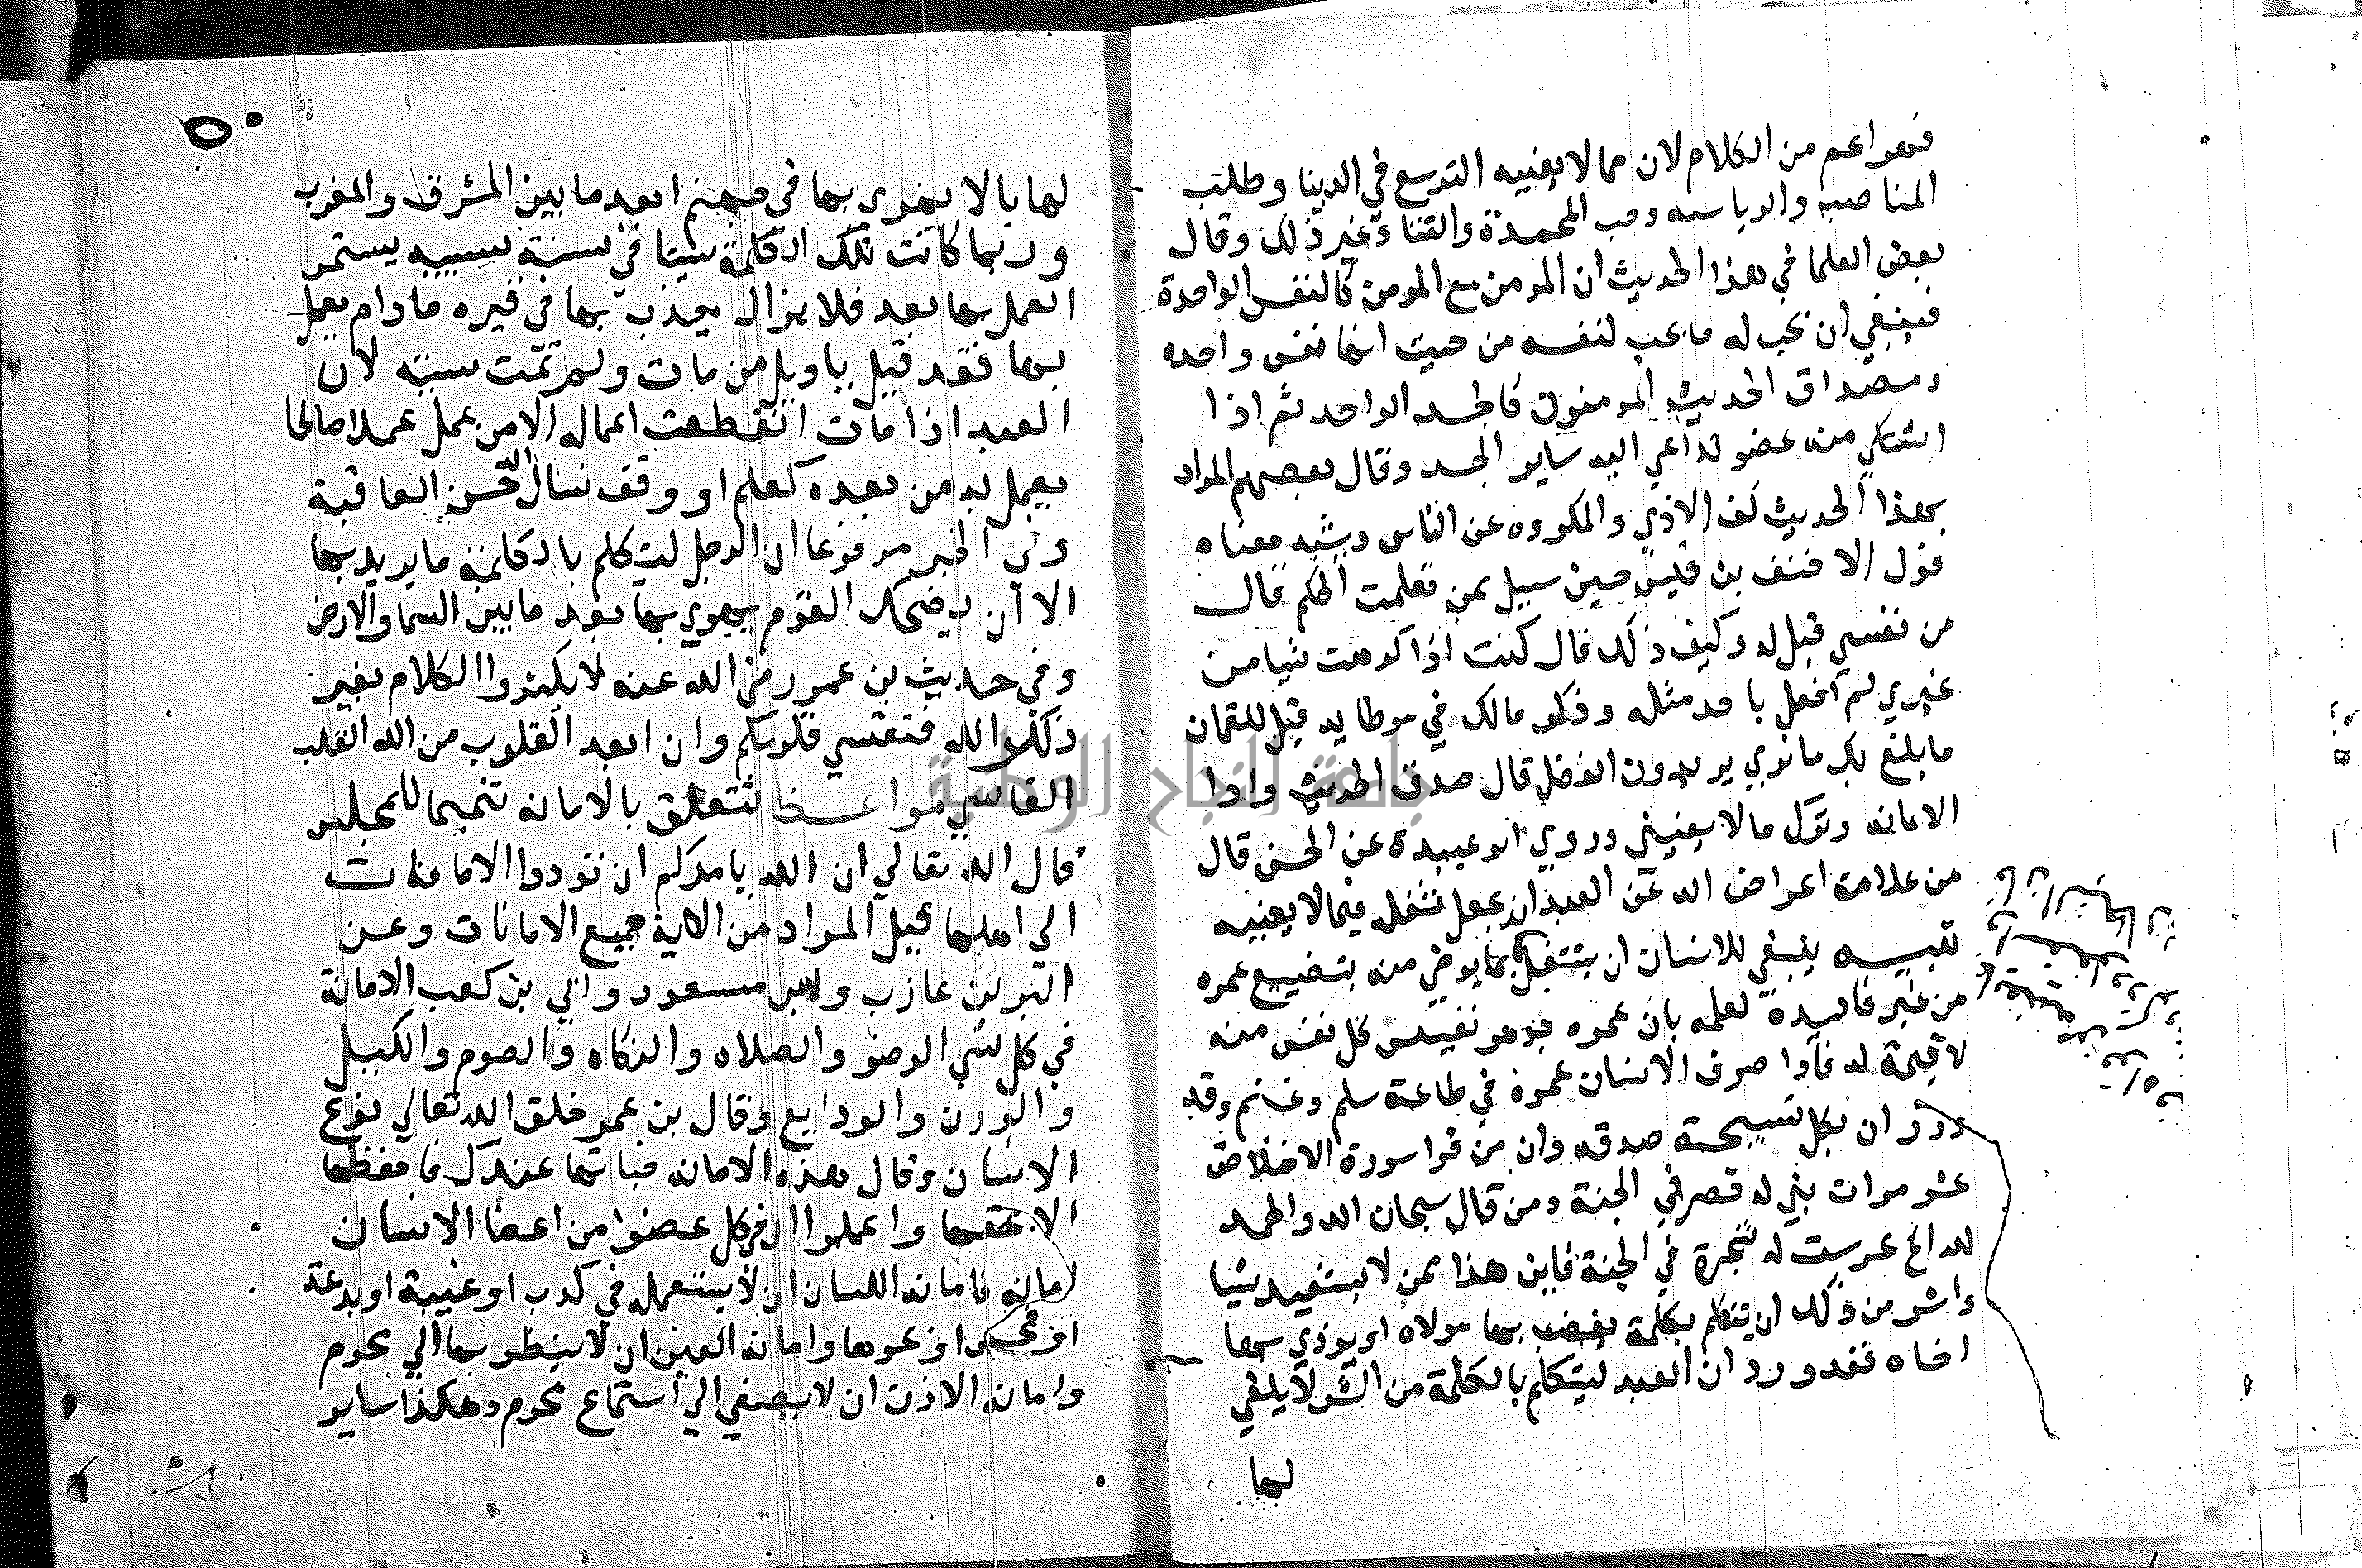 فهو اعم من الكلام لان مما لا يعنيه التوسع في الدينا وطلب
المناصب والرياسه وحب المحمدة والثناء وغير ذلك وقال
بعض العلما في هذا الحديث ان المومن مع المومن كالنفس الواحدة
فينبغي ان يحب له ما يحب لنفسه من حيث انها نفس واحده
ومصداق الحديث المومنون كالجسد الواحد ثم اذا
اشتكي منه عضو تداعي اليه ساير الجسد وقال بعضهم المراد
بهذا الحديث كف الاذي والمكروه عن الناس ويشبه معناه
قول الاحنف بن قيس حين سيل ممن تعلمت الحكم قال
من نفسي قيل له وكيف ذلك قال كنت اذا كرهت شيا من
غيري لم افعل باحد مثله وذكر مالك في موطايه قيل للقمان
ما بلغ بك ما نري يريدون الفضل قال صدق الحديث وادا
الامانه وترك ما لا يعنيني وروي ابو عبيدة عن الحسن قال
من علامة اعراض الله عن العبد ان يجعل شغله فيما لا يعنيه
تنبيه ينبغي للانسان ان يشتغل بما يوضي منه بتضييع عمره
من غير فايدة لعلمه بان عمره جوهر نفيس كل نفس منه
لا قيمة له فاذا صرف الانسان عمره في طاعة سلم وغنم وقد
ورد ان بكل تسبيحة صدقه وان من قرا سورة الاخلاص
عشر مرات بني له قصر في الجنة ومن قال سبحان الله والحمد
لله الخ غرست له شجرة في الجنة فاين هذا ممن لا يستفيد شيا
واشر من ذلك ان يتكلم بكلمة يغضب بها مولاه او يوذي بها
اخاه فقد ورد ان العبد ليتكلم بالكلمة من الشر لا يلقي
لها
٥٠
لها بالا يهوي بها في جهنم ابعد ما بين المشرق والمغرب
وربما كانت تلك الكلمة شيا في سنة سييه يستمر
العمل بها بعد فلا يزال يعذب بها في قبره ما دام يعمل
بها فقد قيل يا ويل من مات ولم تمت سيته لان
العبد اذا مات انقطعت اعماله الا من عمل عملا صالحا
يعمل به من بعده كعلم او وقف نسال الله حسن العاقبة
وفي الخبر مرفوعا ان الرجل ليتكلم بالكلمة ما يريد بها
الا ان يضحك القوم يهوي بها بعد ما بين السما والارض
وفي حديث بن عمر رضي الله عنه لا تكثروا الكلام بغير
ذكر الله فتقسي قلوبكم وان ابعد القلوب من الله القلب
القاسي مواعظ تتعلق بالامانه تتميما للمجلس
قال الله تعالي ان الله يامركم ان تودوا الامانات
الي اهلها قيل المراد من الاية جميع الامانات وعن
البر بن عازب وابن مسعود وابي بن كعب الامانة
في كل شي الوضو والصلاه والزكاه والصوم والكيل
والوزن والودايع وقال بن عمر خلق الله تعالي فرج
الانسان وقال هذه الامانه خباتها عندك فاحفظها
الا بحقها واعلموا ان في كل عضوا من اعضا الانسان
امانه فامانه اللسان ان لا يستعمله في كدب او غيبة او بدعة
او فحش او نحوها وامانه العين ان لا ينظر بها الي محرم
وامانه الاذن ان لا يصغي الي استماع محرم وهكذا ساير
جامعة النجاح الوطنية